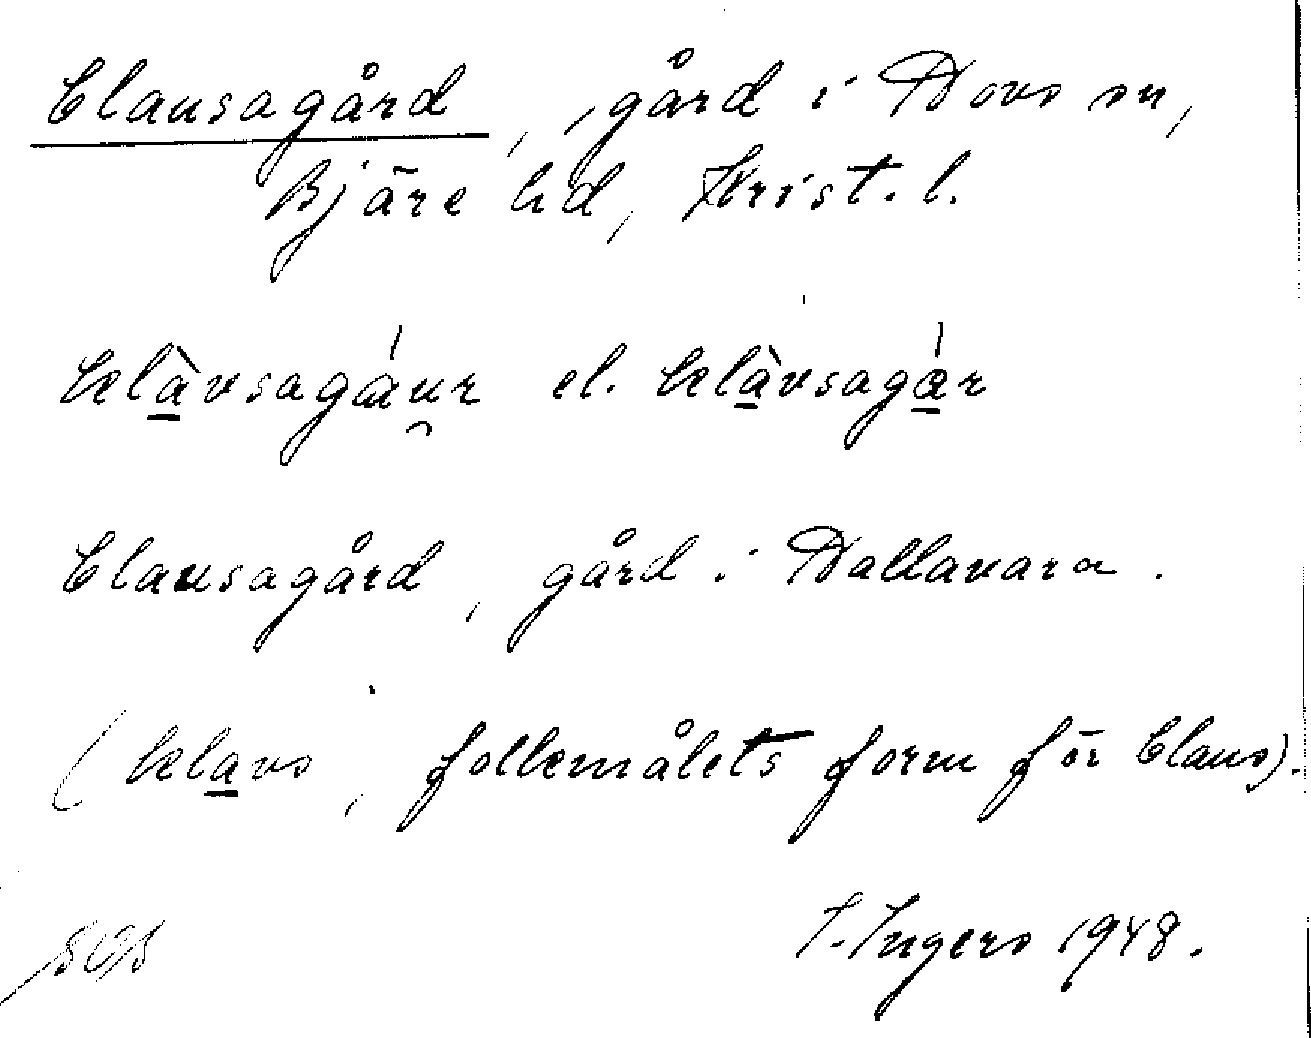 Clausagård, gård i Hovs sn,
Bjäre hd, Krist. l.
klà̱vsagáu̯r el. klà̱vsagá̱r
Clausagård, gård i Hallavara.
(kla̱vs, folkemålets form för Claus).
I. Ingers 1948.